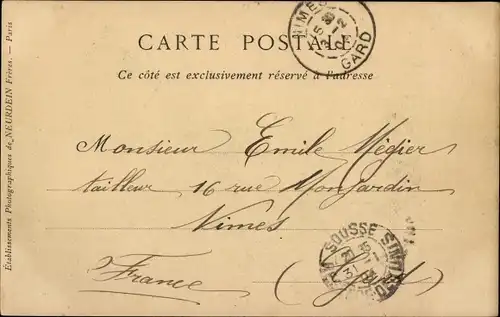 CARTE POSTALE
Ce côté est exclusivement réservé à l'adresse
NIMES
GARD
Monsieur Emile Mégier
tailleur 16 rue Monjardin
Nimes
France (Gard)
SOUSSE
Établissements Photographiques de NEURDEIN Frères. — Paris